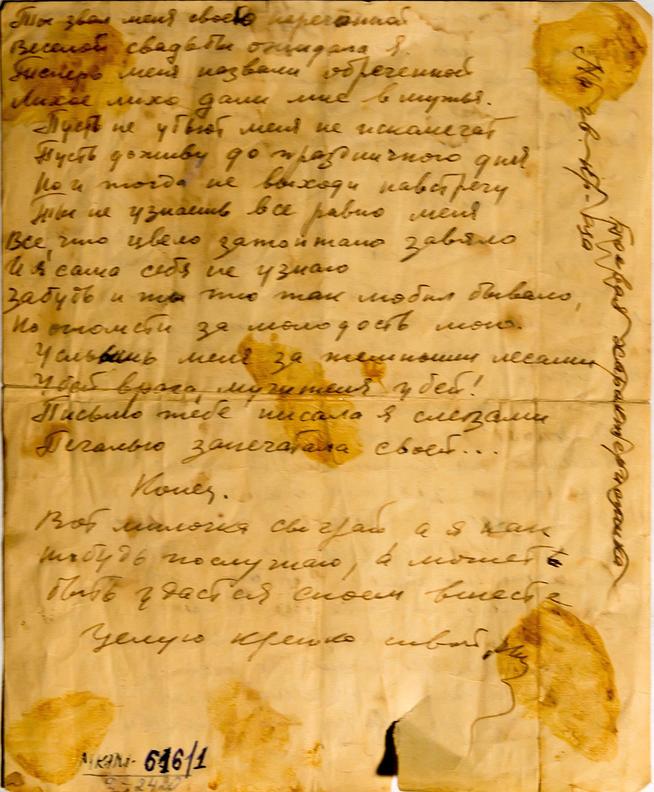 Ты звал меня своею нареченной
Веселой свадьбы ожидала я
Теперь меня назвали обреченной
Лихое лихо дали мне в мужья.
Пусть не убьют меня не искалечат
Пусть доживу до праздничного дня
Но и тогда не выходи навстречу
Ты не узнаешь все равно меня
Все, что цвело затоптано завяло
И я сама себя не узнаю
Забудь и ты что так любил бывало,
Но отомсти за молодость мою.
Услышь меня за темными лесами
Убей врага, мучителя убей!
Письмо тебе писала я слезами
Печалью запечатала своей...
Конец.
Вот милочка сыграй а я как
нибудь послушаю, а может
быть удастся споем вместе
Целую крепко твой
МКАМ- 616/1